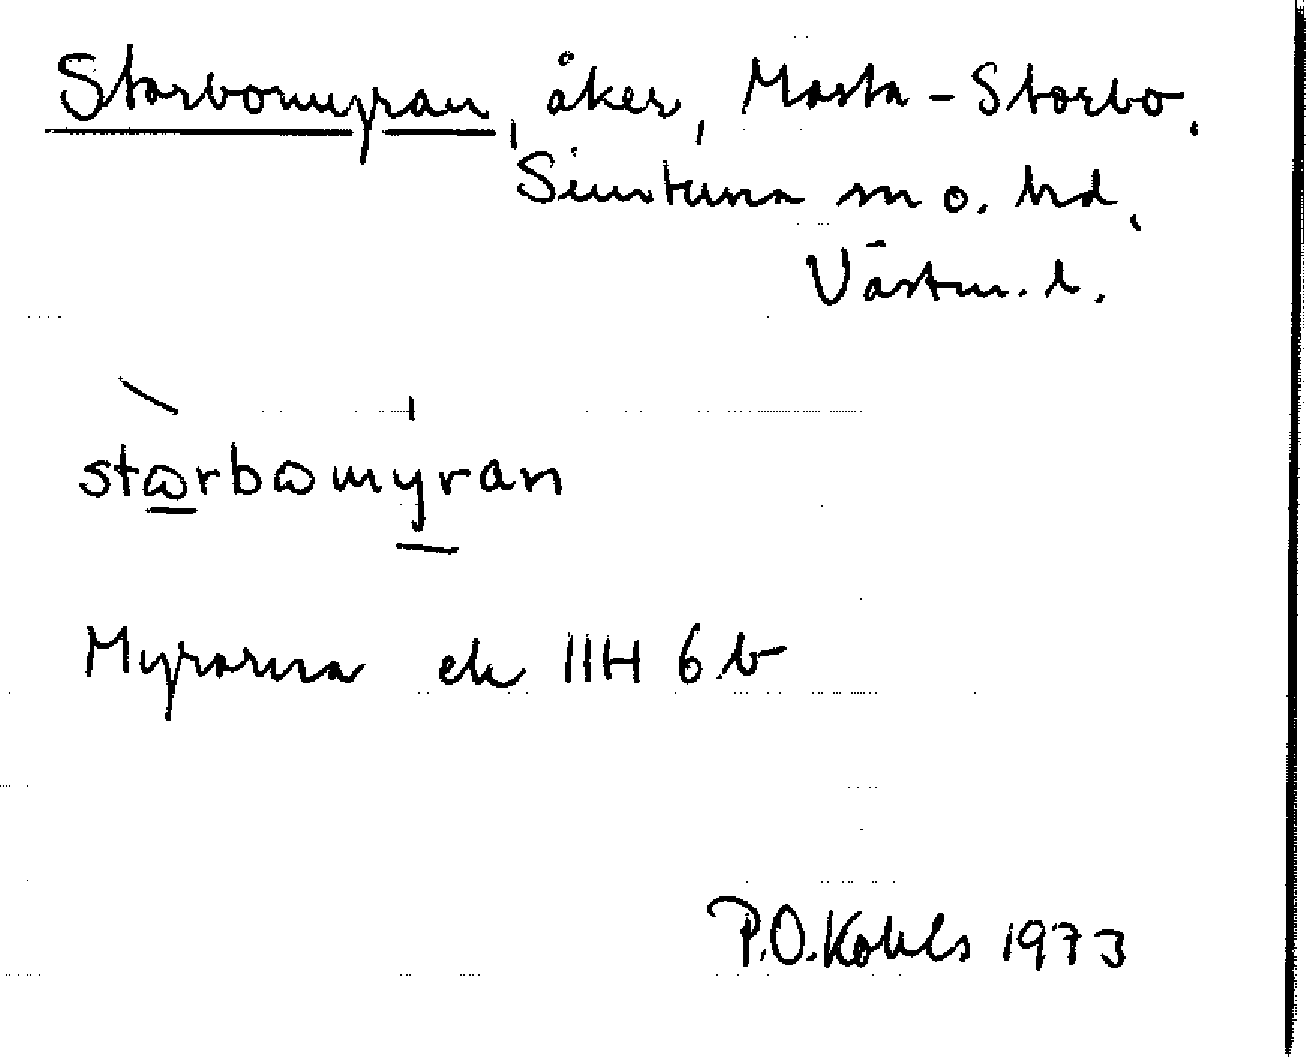 Storbomyran, åker, Mosta-Storbo,
Simtuna sn o. hd,
Västm. l.
storbomyran
Myrorna ek 11H 6 b
P.O. Kohls 1973